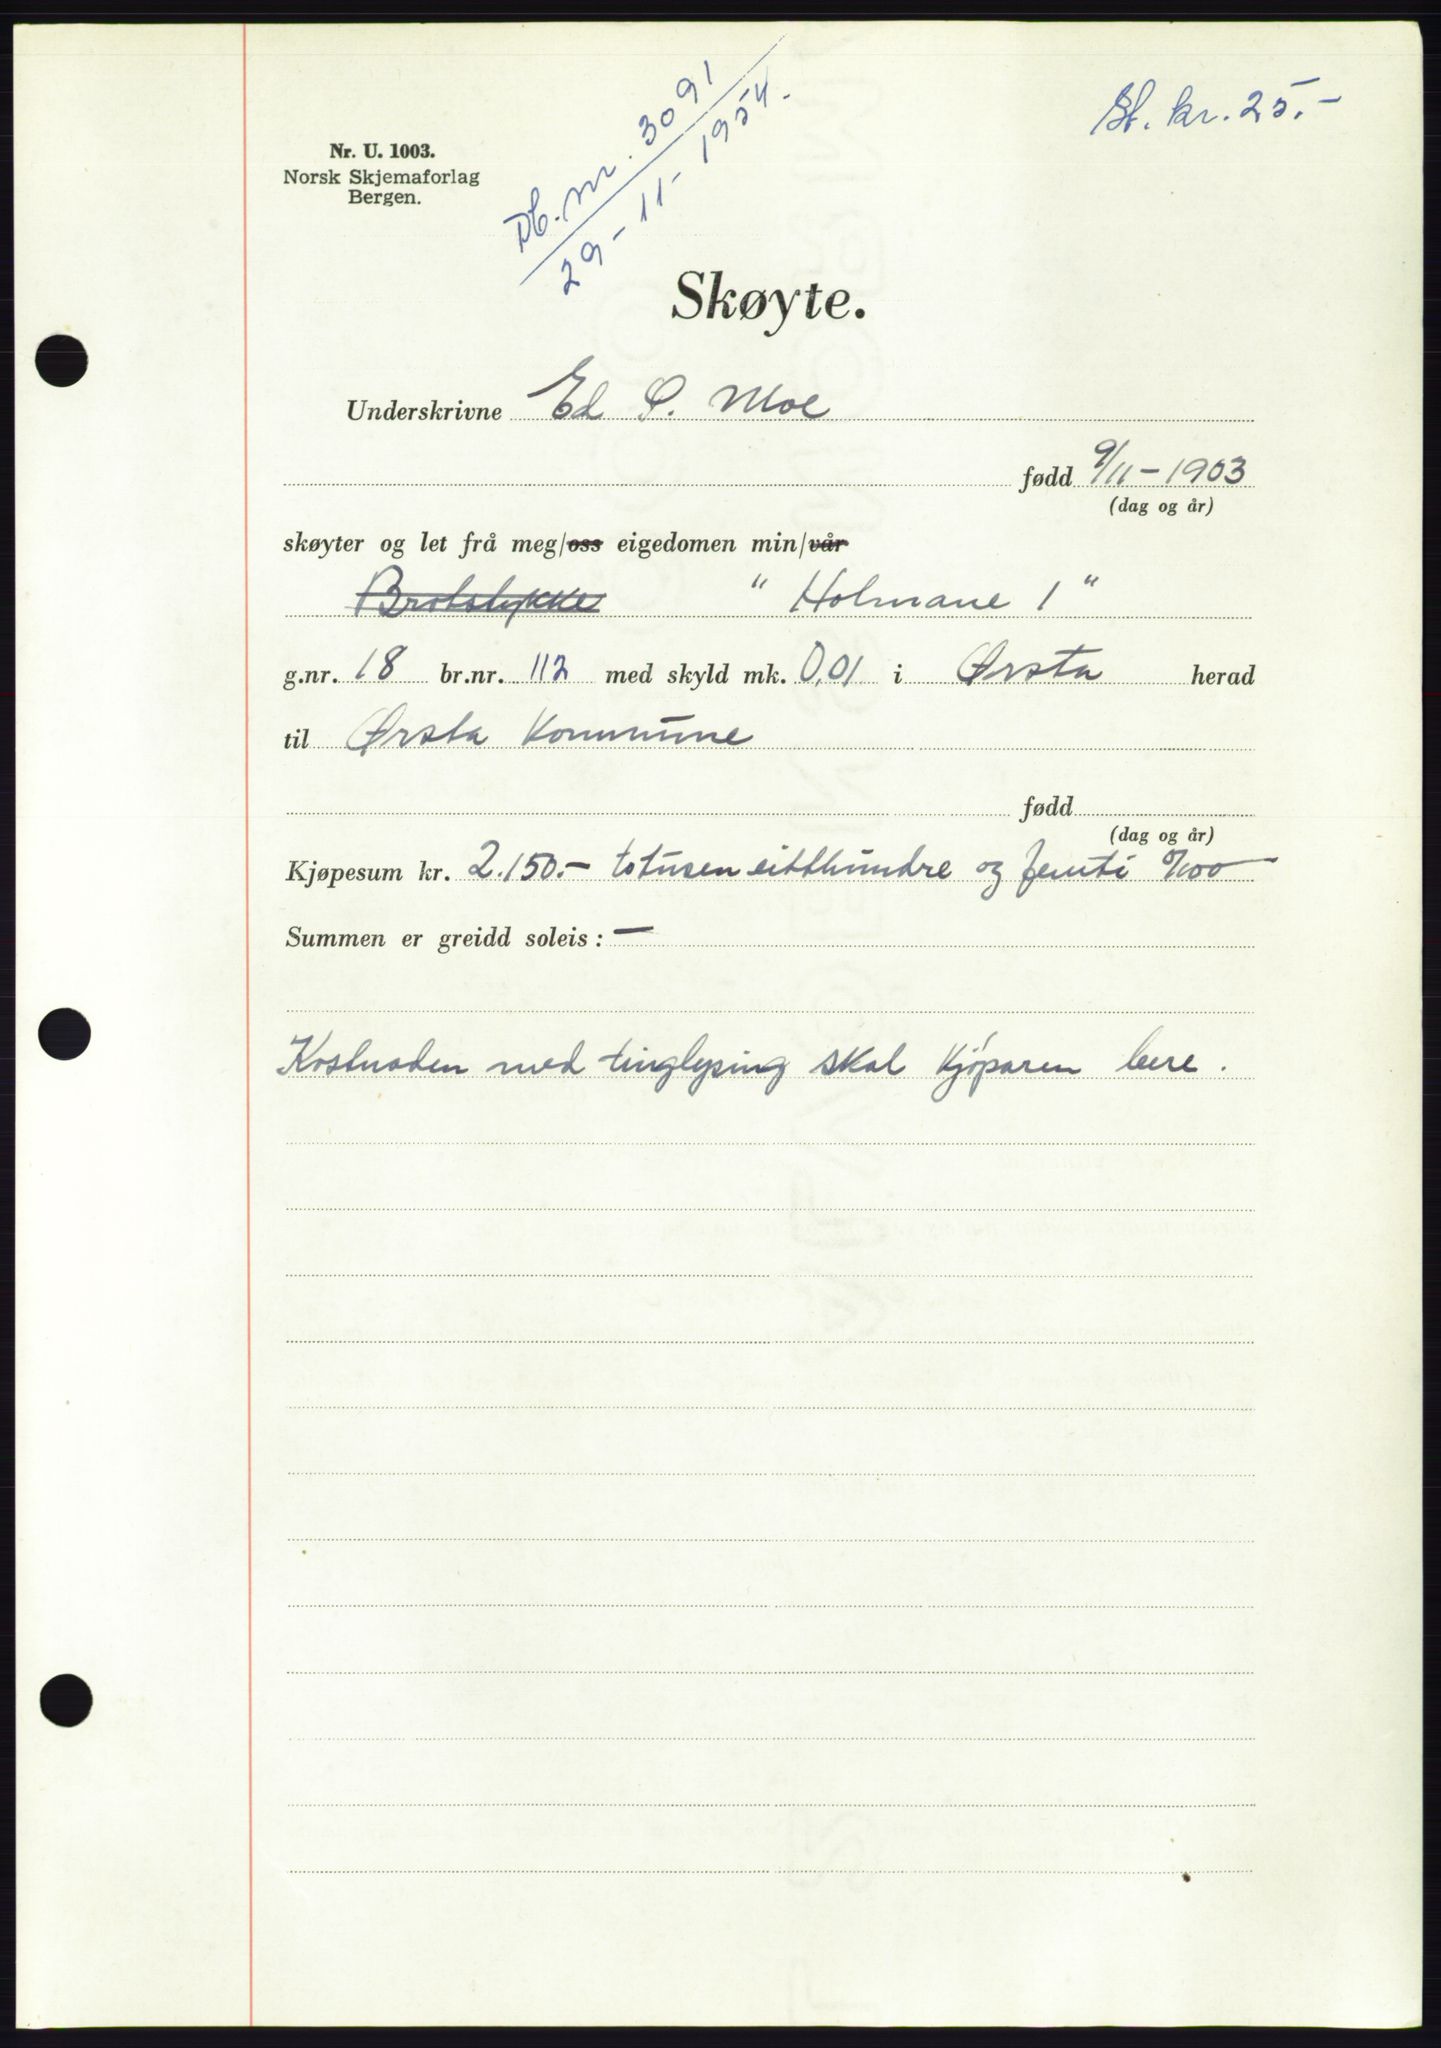 St. kr. 25.-
Db. nr. 3091
29-11-1954.
Nr. U. 1003.
Norsk Skjemaforlag
Bergen.
Skøyte.
Underskrivne Ed O. Moe
fødd 9/11-1903
(dag og år)
skøyter og let frå meg/oss eigedomen min/vår
Brotstykke "Holmane 1"
g.nr. 18 br.nr. 112 med skyld mk. 0,01 i Ørsta herad
til Ørsta Kommune
fødd
(dag og år)
Kjøpesum kr. 2.150.- totusen eitthundre og femti 0/100
Summen er greidd soleis: —
Kostnaden med tinglysing skal kjøparen bere.